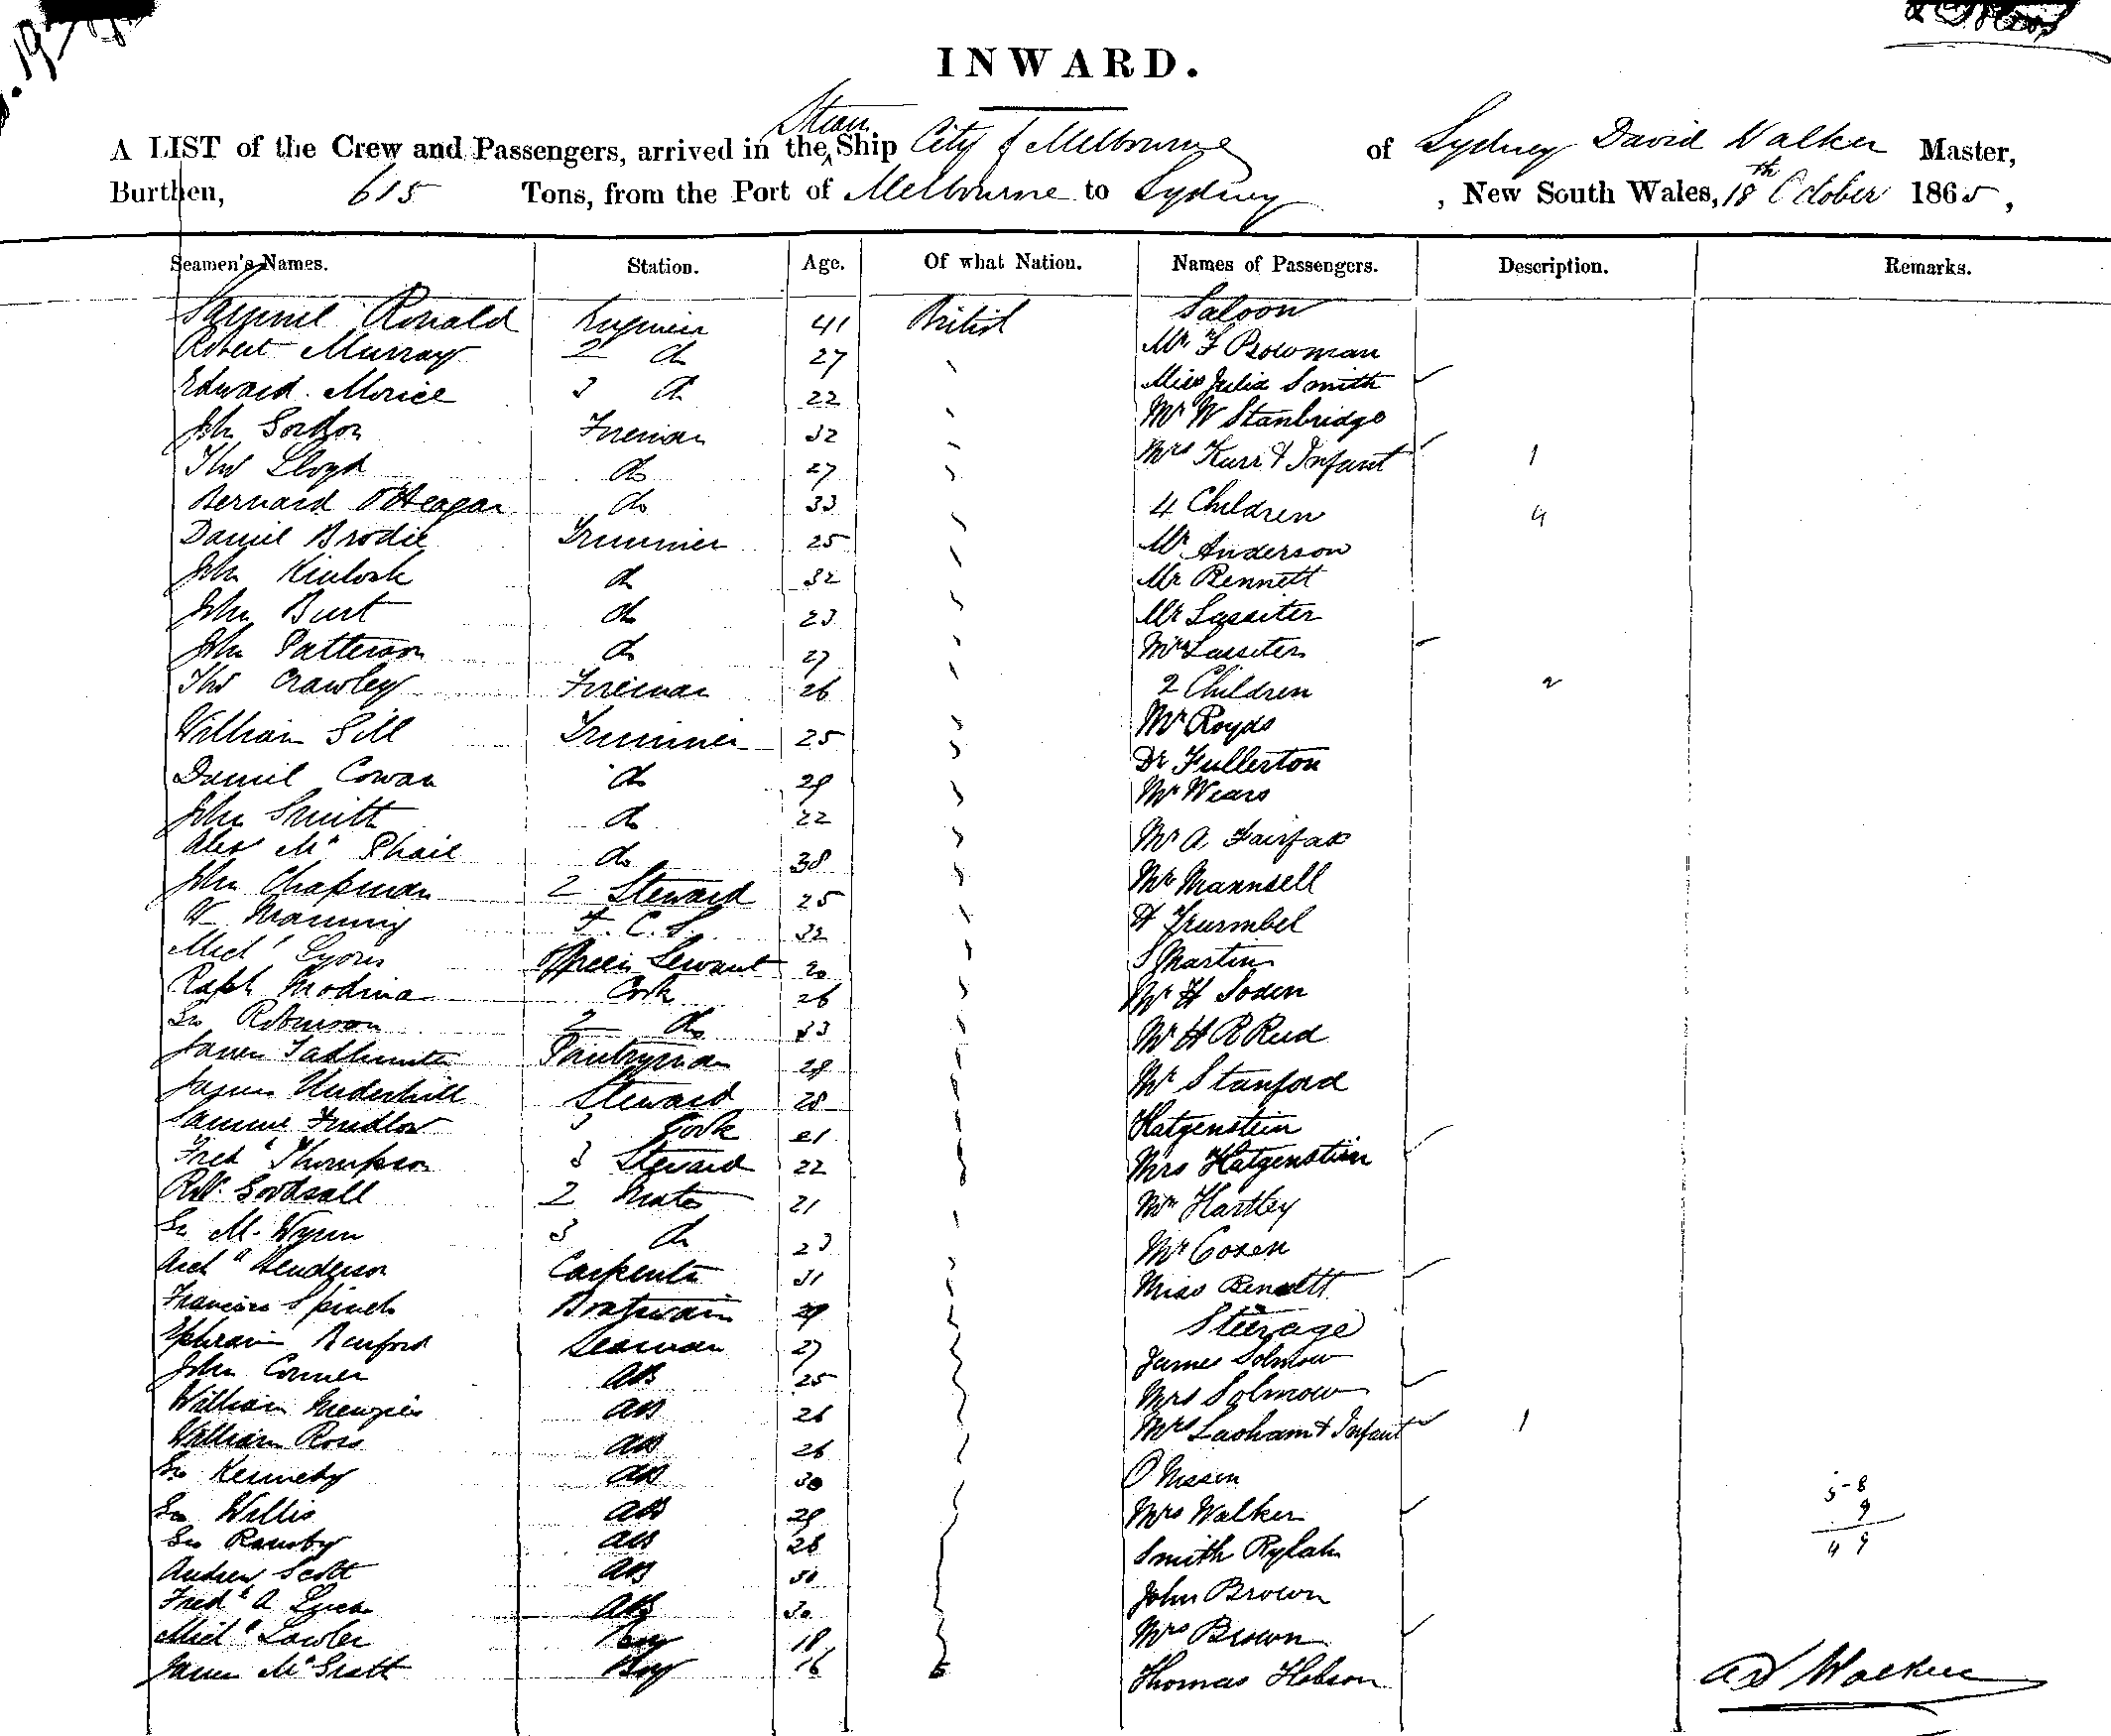 INWARD.
A LIST of the Crew and Passengers, arrived in the Steam Ship City of Melbourne of Sydney David Walker Master,
Burthen, 615 Tons, from the Port of Melbourne to Sydney, New South Wales, 18th October 1865,
Seamen's Names. Station. Age. Of what Nation. Names of Passengers. Description. Remarks.
Samuel Ronald Engineer 41 British Saloon
Robert Murray 2 do 27 Mr F Bowman
Edward Morice 3 do 22 Miss Julia Smith
John Gordon Fireman 32 Mr W Stanbridge
Thos Lloyd do 27 Mrs Kurr & Infant 1
Bernard O'Heagan do 33 4 Children 4
Daniel Brodie Trimmer 25 Mr Anderson
John Kinlock do 32 Mr Bennett
John Burt do 23 Mr Lassiter
John Patterson do 27 Mrs Lassiter
Thos Crawley Fireman 26 2 Children 2
William Gill Trimmer 25 Mr Royds
Daniel Cowan do 29 Dr Fullerton
John Smith do 22 Mr Wears
Alex Mc Phail do 38 Mr A Fairfax
John Chapman 2 Steward 25 Mr Mannsell
W Manning F.C.S. 32 H Trumbel
Micl Lyons Officers Servant 20 S Martin
Ralph Modina Cook 26 Mr H Soden
Geo Robinson 2 do 33 Mr H R Reid
James Pantryman 28 Mr Stanford
James Underhill Steward 28 Hatgenstein
Samuel 3 Cook 21 Mrs Hatgenstein
Fredk Thompson 3 Steward 22 Mr Hartley
Goodsall 2 Mate 21 Mr Coxen
Geo M. Wynn 3 do 23 Miss Bennett
Archd Henderson Carpenter 31 Steerage
Francis Spinch Boatswain 29 James Solmow
Ephraim Benford Seaman 27 Mrs Solmow
John Conner AB 25 Mrs Lasham & Infant 1
William Menzies AB 26 O Nissen
William Ross AB 26 Mrs Walker
Geo Kennedy AB 30 Smith Rylah
Geo Willis AB 29 John Brown
Geo Ramsby AB 28 Mrs Brown
Andrew Scott AB 30 Thomas Hobson
Fredk A AB 30
Micl Lawler Boy 18
James McGratt Boy 16
5-8
9
49
Walker